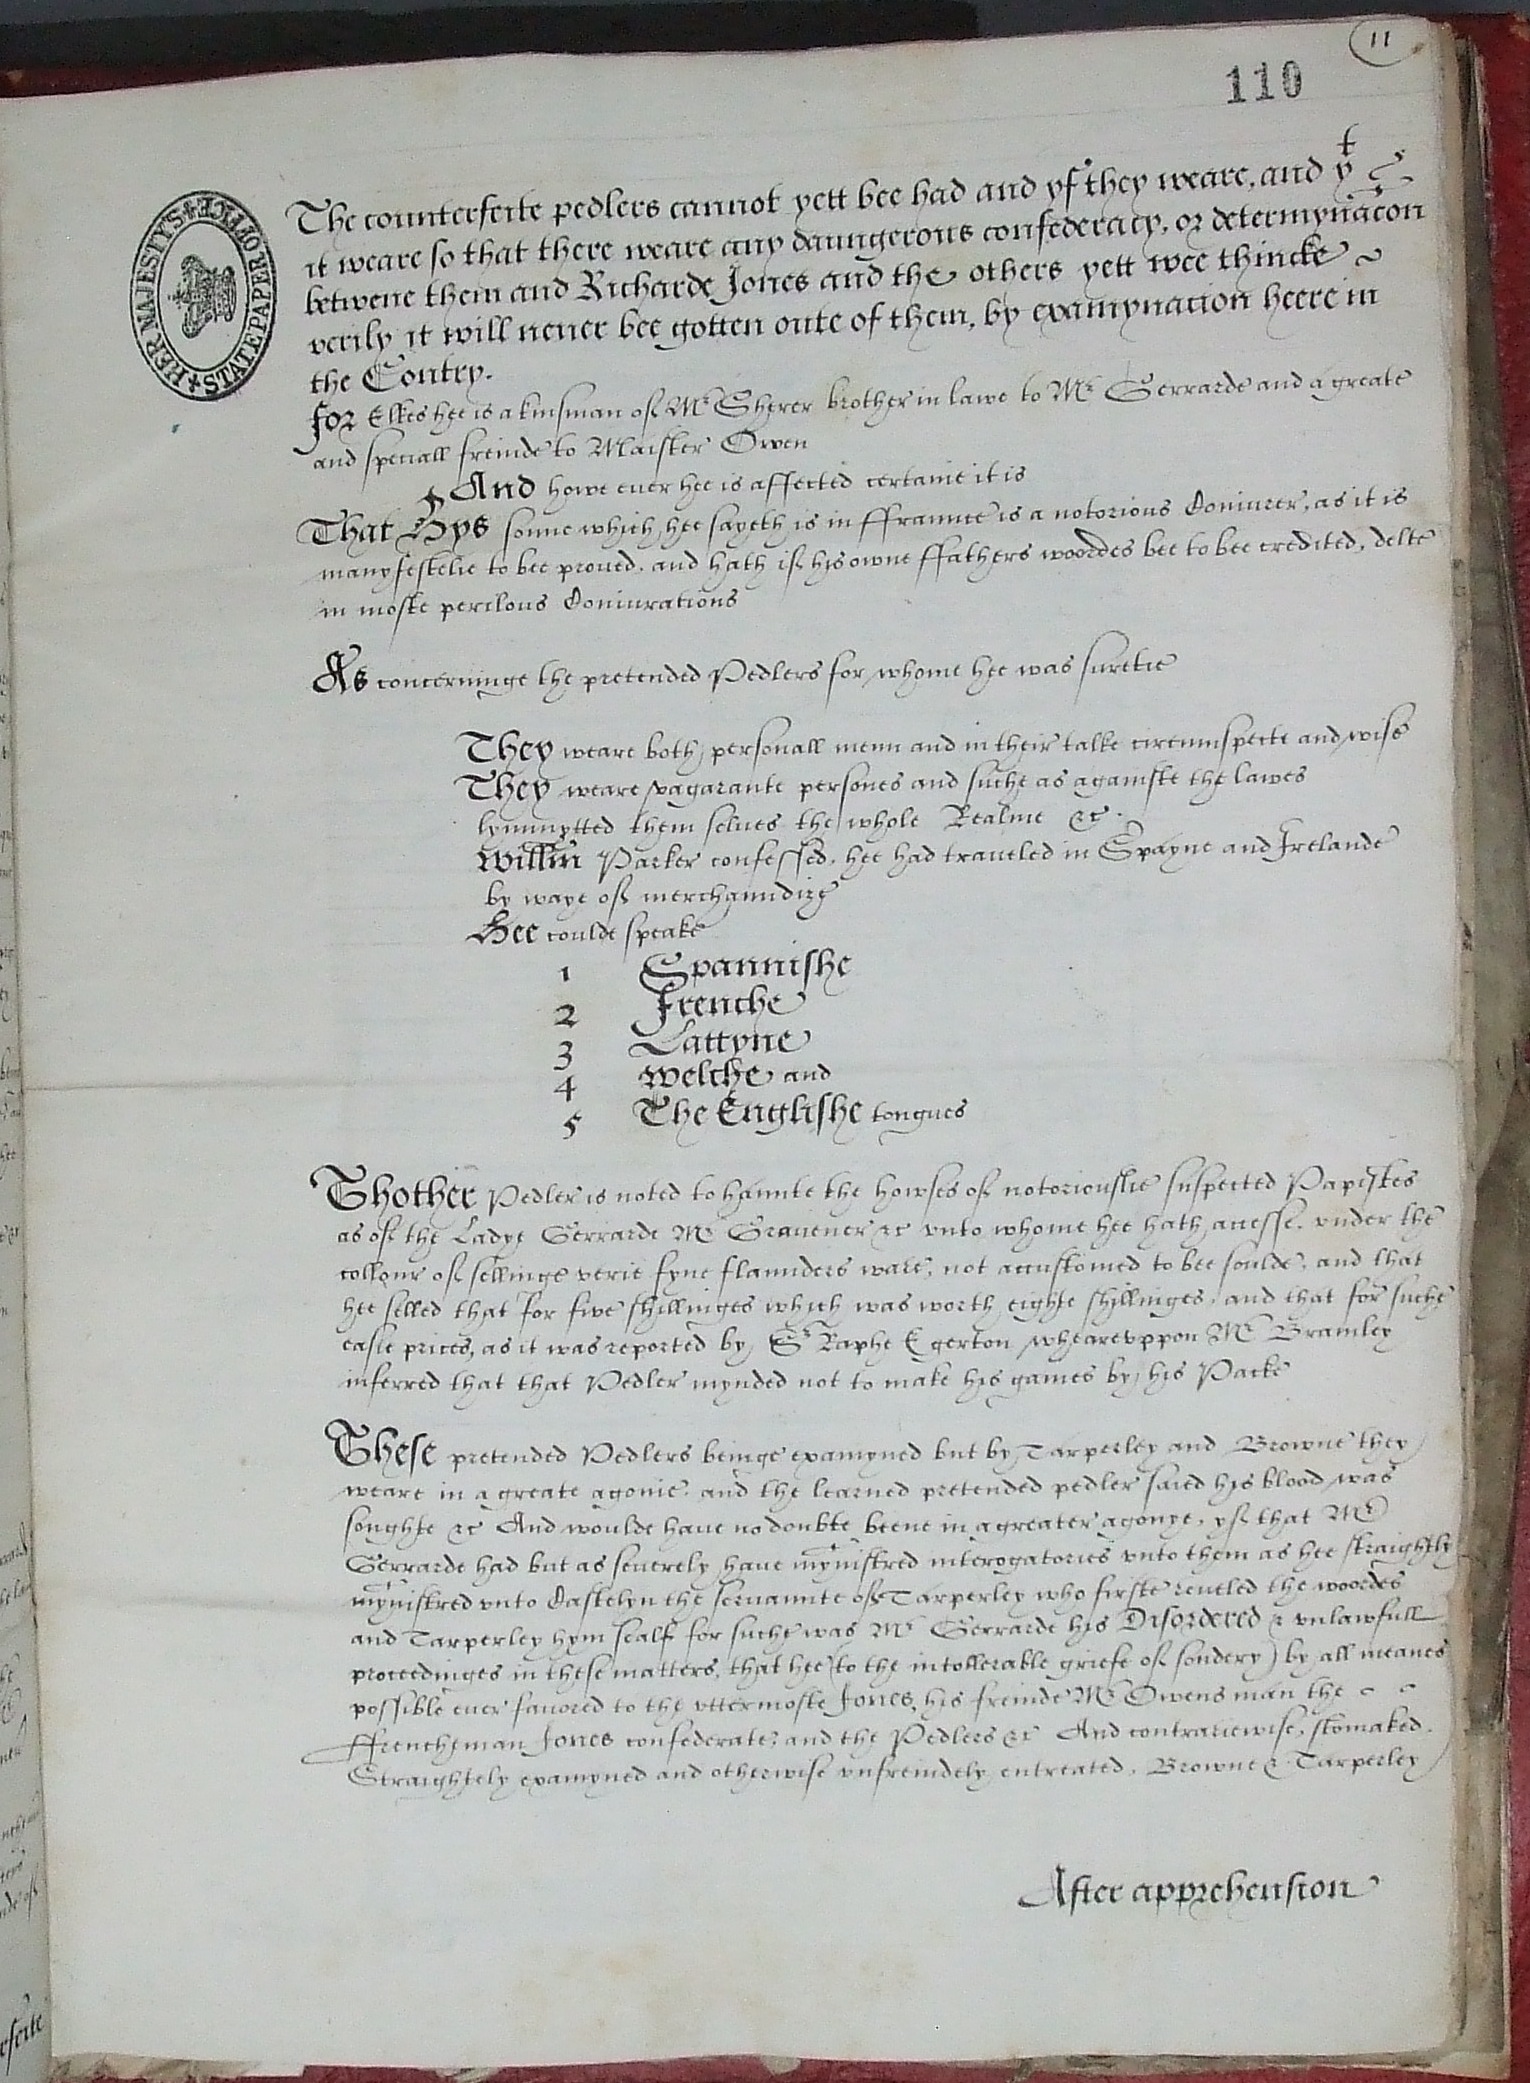 11
110
HER MAJESTY'S STATE PAPER OFFICE
The counterfeite pedlers cannot yett bee had and yf they weare, and yt
it weare so that there weare any daungerous confederacy, or determynacon
betwene them and Richarde Jones and the others yett wee thincke
verily it will never bee gotten oute of them, by examynacion heere in
the Contry.
for Elkes hee is a kinsman of Mr Sherer brother in lawe to Mr Gerrarde and a greate
and speciall freinde to Maister Owen
And howe ever hee is affected certaine it is
That Hys sonne which hee sayeth is in ffraunce is a notorious Coniurer, as it is
manyfestelie to bee proved. and hath if his owne ffathers woordes bee to bee credited, delte
in moste perilous Coniurations
As concerninge the pretended Pedlers for whome hee was suretie
They weare both personall menn and in their talke circumspecte and wise
They weare vagarante persones and suche as againste the lawes
lymmytted them selves the whole Realme &c.
Willm Parker confessed. hee had traveled in Spayne and Irelande
by waye of merchaundize
Hee coulde speake
1 Spannishe
2 Frenche
3 Lattyne
4 Welche and
5 The Englishe tongues
Thother Pedler is noted to haunte the howses of notoriouslie suspected Papistes
as of the Ladye Gerrarde Mr Gravener &c unto whome hee hath accesse. under the
collour of sellinge verie fyne flaunders ware, not accustomed to bee soulde, and that
hee selled that for five shillinges which was worth eighte shillinges. and that for suche
easie prices, as it was reported by Sr Raphe Egerton whearevppon Mr Bramley
inferred that that Pedler mynded not to make his gaines by his Packe
These pretended Pedlers beinge examyned but by Tarperley and Browne they
weare in a greate agonie. and the learned pretended pedler saied his blood was
soughte &c And woulde have no doubte beene in a greater agonye, yf that Mr
Gerrarde had but as severely have mynistred interogatories vnto them as hee straightly
mynistred vnto Castelyn the servaunte of Tarperley who firste reveled the woordes
and Tarperley hym sealf for suche was Mr Gerrarde his Disordered & vnlawfull
proceedinges in these matters, that hee (to the intollerable griefe of sondery) by all meanes
possible ever favored to the vttermoste Jones, his freinde Mr Owens man the
ffrencheman Jones confederate, and the Pedlers &c And contrariewise, stomaked.
Straightely examyned and otherwise vnfreindely entreated, Browne & Tarperley
After apprehension